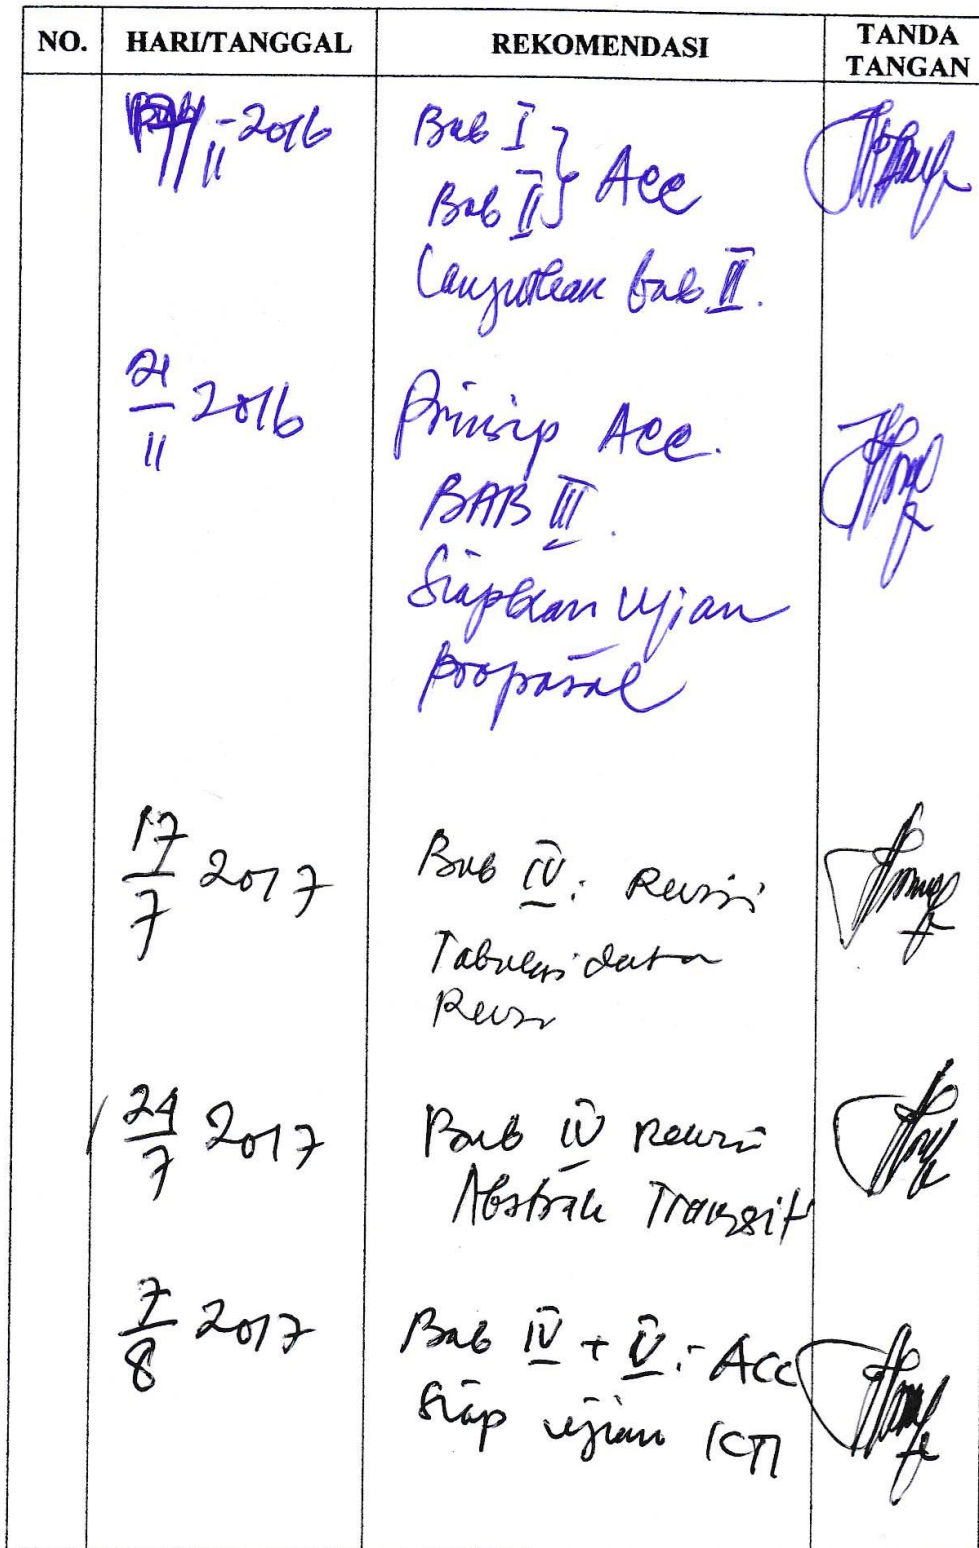 NO. HARI/TANGGAL REKOMENDASI TANDA TANGAN
11 - 2016 Bab I } Acc
Bab II
Lanjutkan bab II.
21/11 2016 Prinsip Acc.
BAB III.
Siapkan Ujian
Proposal
17/7 2017 Bab IV: Revisi
Tabulasi data
Revisi
24/7 2017 Bab IV Revisi
Abstrak
7/8 2017 Bab IV + V : Acc
Siap ujian KTI